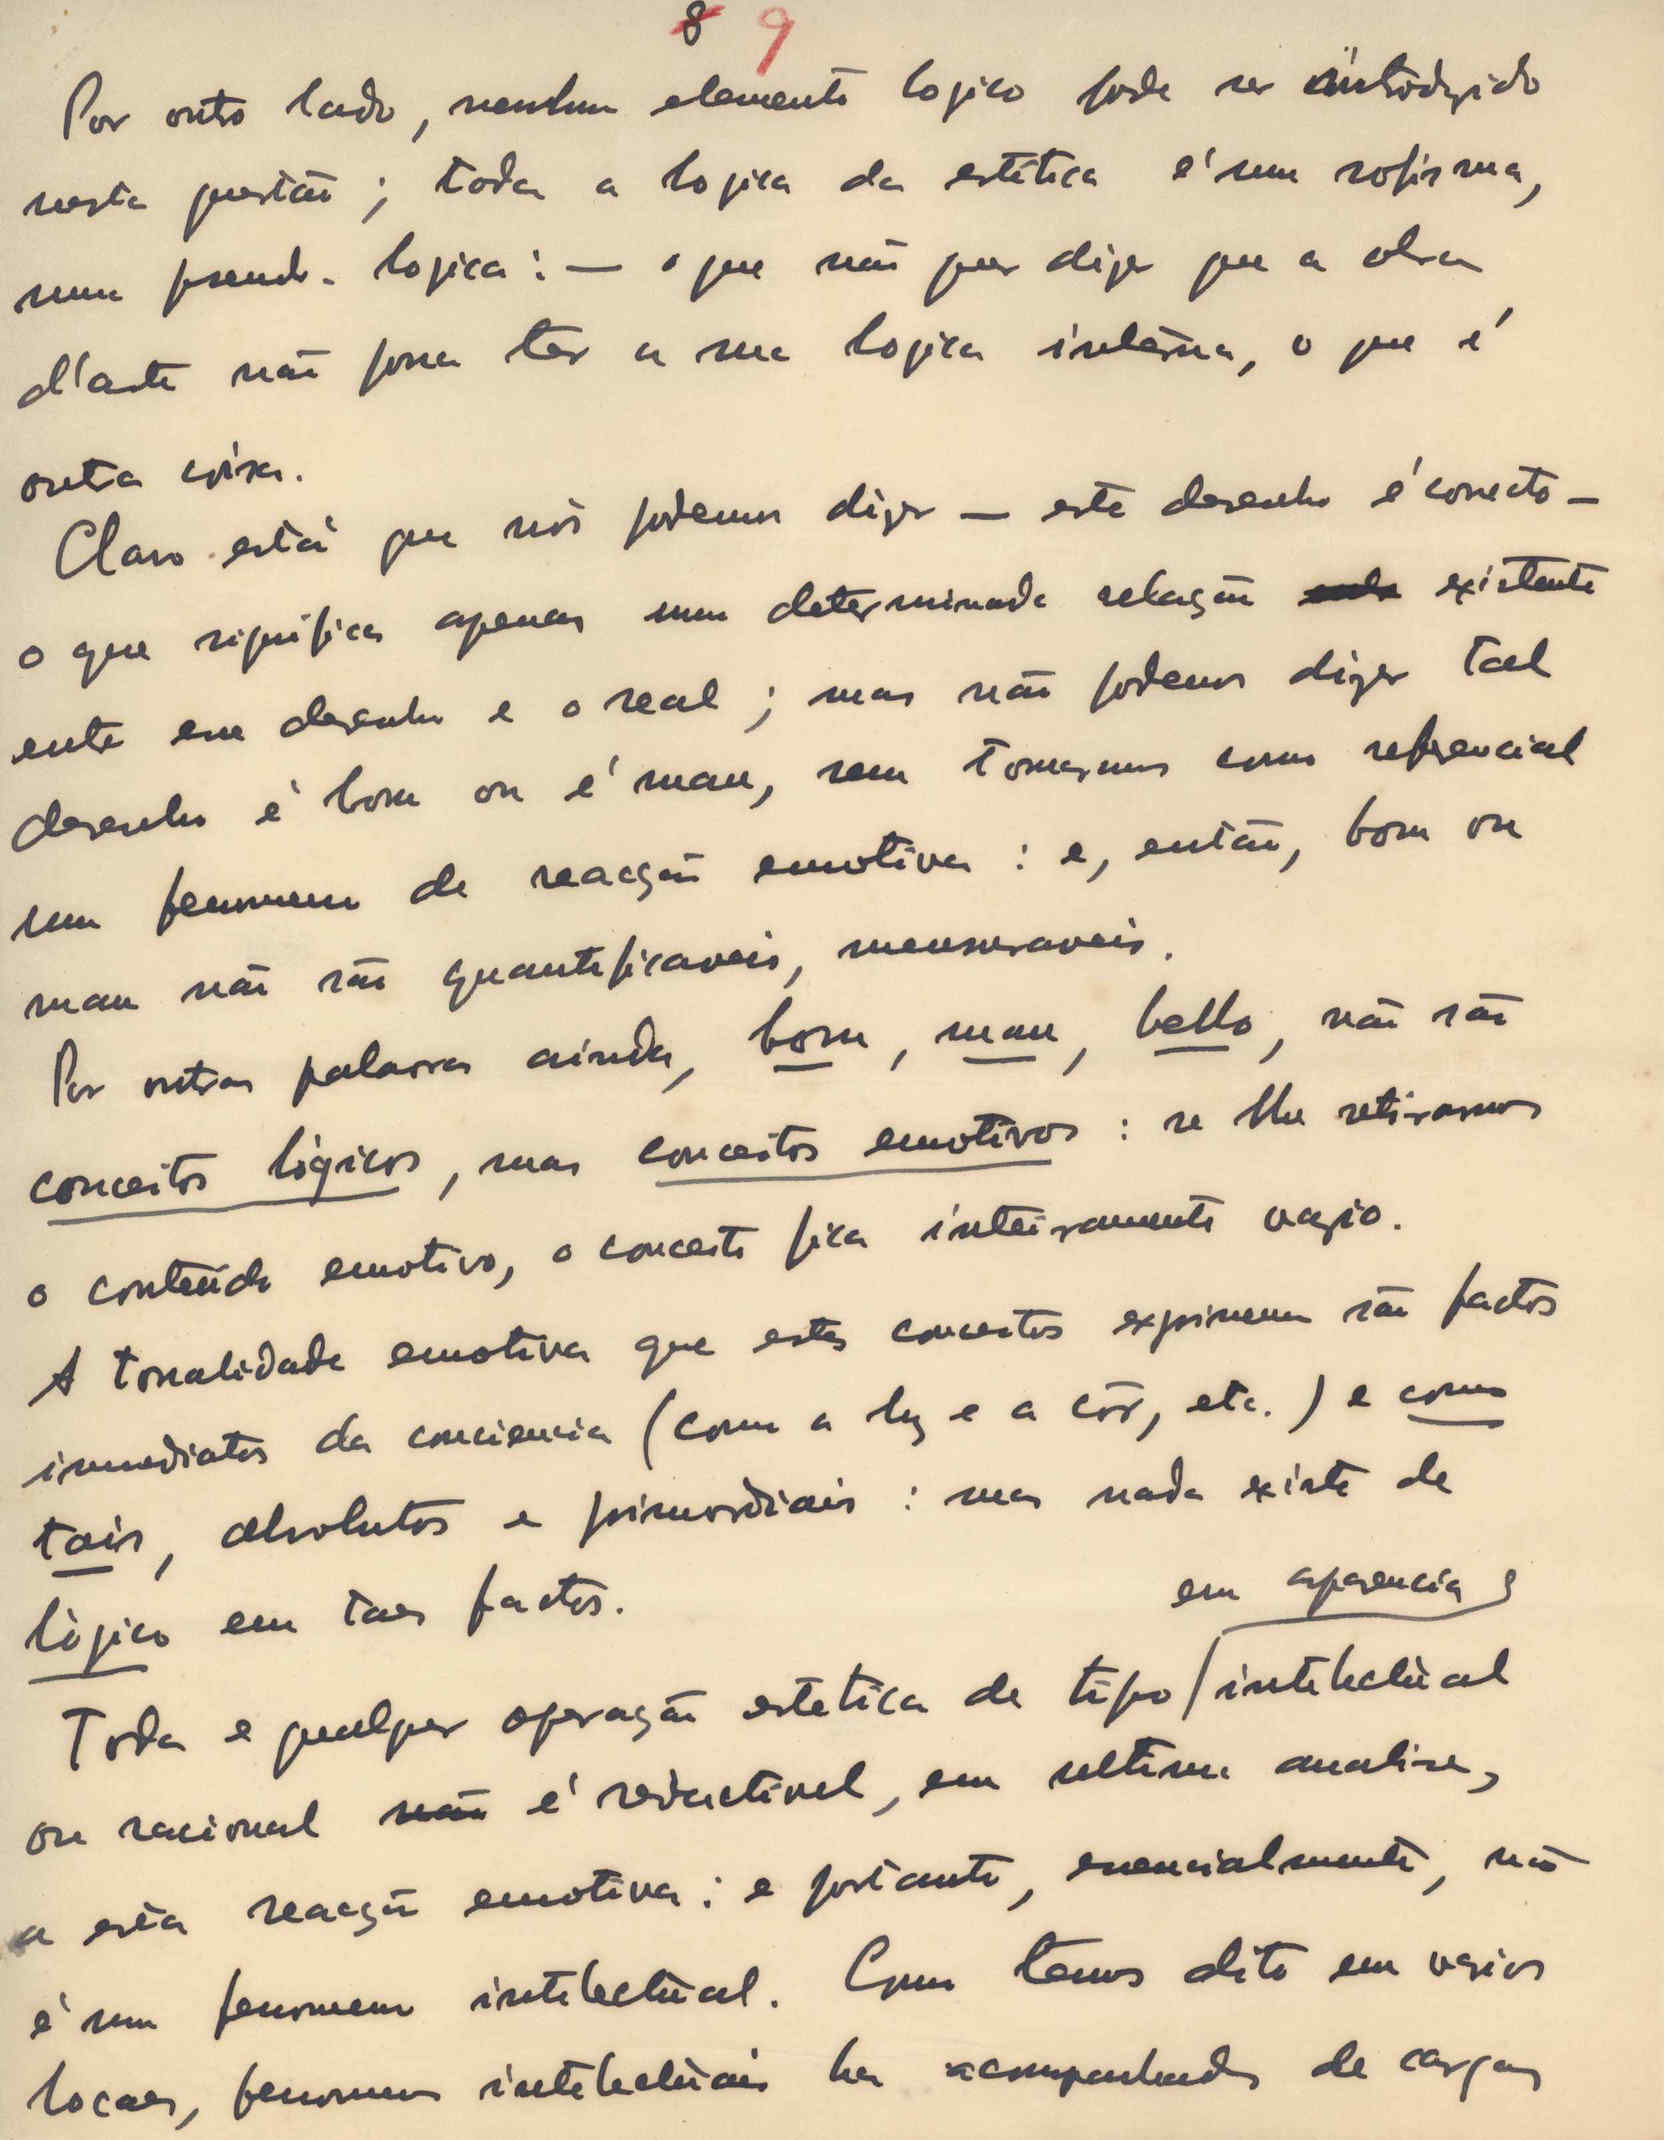 8 9
Por outro lado, nenhum elemento logico pode ser introduzido
nesta questão; toda a logica da estética é um sofisma,
uma pseudo-logica: — o que não quer dizer que a obra
d'arte não possa ter a sua logica interna, o que é
outra coisa.
Claro está que nós podemos dizer — este desenho é correcto —
o que significa apenas uma determinada relação existente
entre esse desenho e o real; mas não podemos dizer tal
desenho é bom ou é mau, sem tomarmos como referencial
um fenomeno de reacção emotiva: e, então, bom ou
mau não são quantificaveis, mensuraveis.
Por outras palavras ainda, bom, mau, bello, não são
conceitos lógicos, mas conceitos emotivos: se lhe retiramos
o conteúdo emotivo, o conceito fica inteiramente vazio.
A tonalidade emotiva que estes conceitos exprimem são factos
immediatos da conciencia (como a luz e a côr, etc.) e como
tais, absolutos e primordiais: mas nada existe de
lógico em taes factos.
em aparencia
Toda e qualquer operação estetica de tipo intelectual
ou racional não é reductivel, em ultima analise,
a esta reacção emotiva: e portanto, essencialmente, não
é um fenomeno intelectual. Como temos dito em varios
locaes, fenomenos intelectuais ha acompanhados de cargas